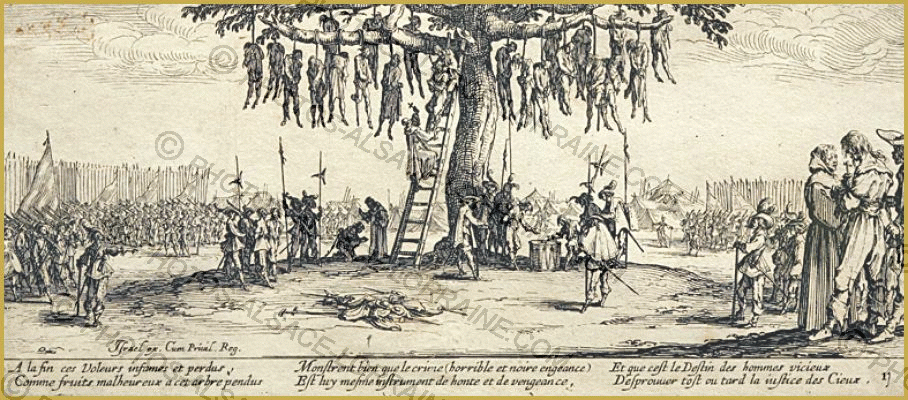 Israel ex. Cum Privil. Reg.
A la fin ces Voleurs infames et perdus,
Comme fruits malheureux a cet arbre pendus
Monstrent bien que le crime (horrible et noire engeance)
Est luy mesme instrument de honte et de vengeance,
Et que cest le Destin des hommes vicieux
Desprouuer tost ou tard la iustice des Cieux.